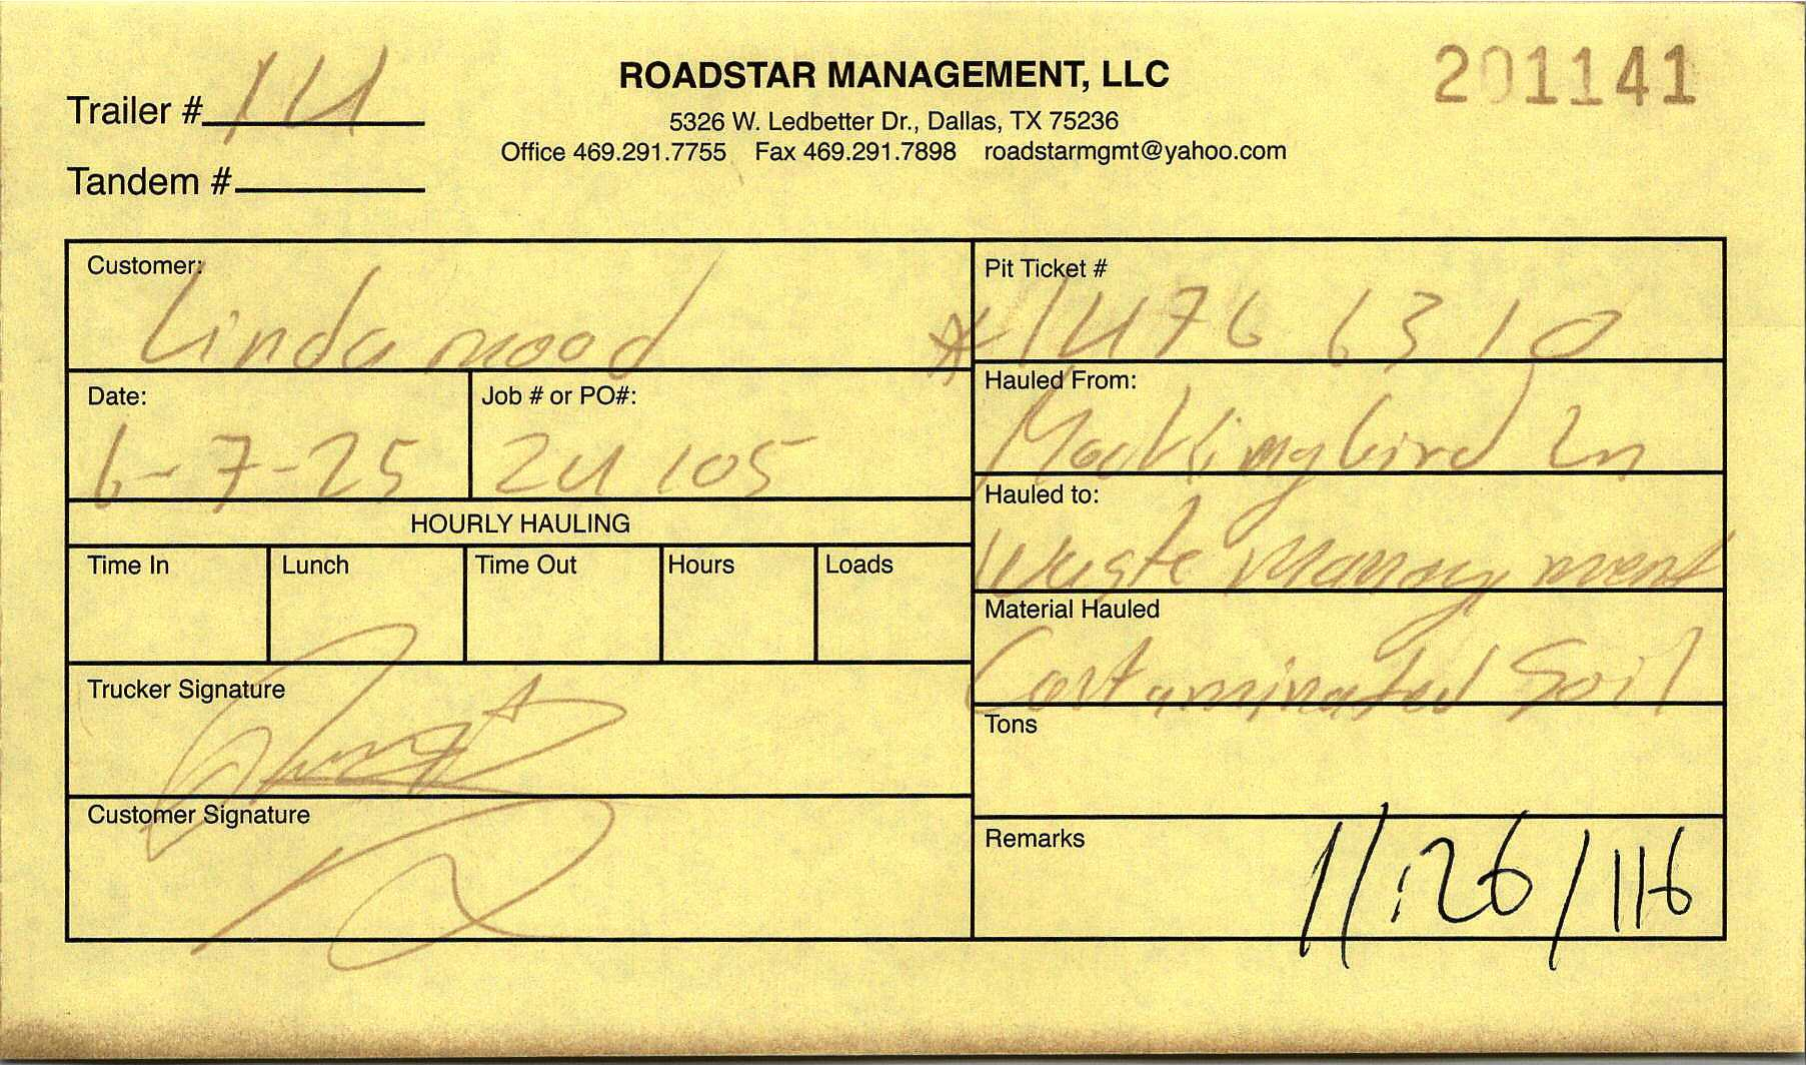 Trailer # 14
ROADSTAR MANAGEMENT, LLC
201141
5326 W. Ledbetter Dr., Dallas, TX 75236
Office 469.291.7755 Fax 469.291.7898 roadstarmgmt@yahoo.com
Tandem #
Customer: Lindamood
Pit Ticket #
*1476 6310
Date: 6-7-25
Job # or PO#: 24105
Hauled From:
Mockingbird Ln
Hauled to:
Waste Management
HOURLY HAULING
Time In Lunch Time Out Hours Loads
Material Hauled
Contaminated Soil
Trucker Signature
Tons
Customer Signature
Remarks
11:26/116